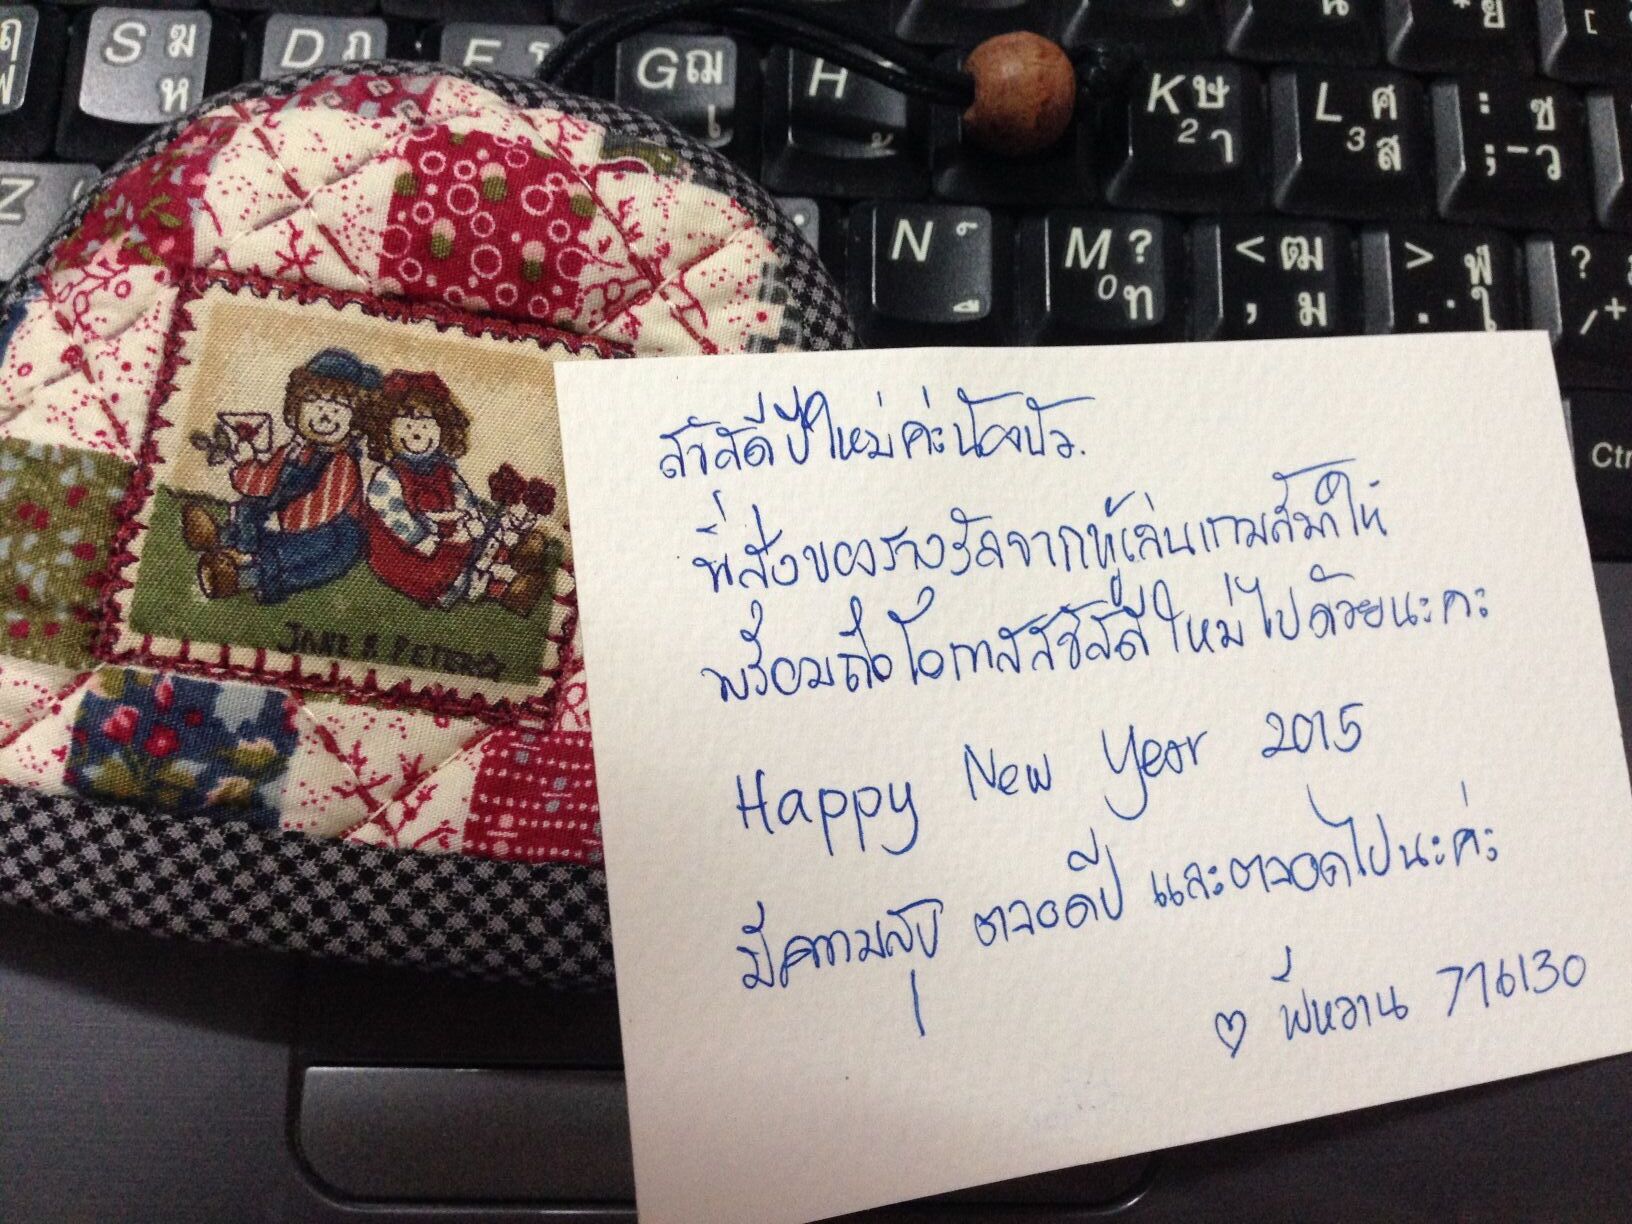 S ฆ ห
D ฏ
F
G ฌ เ
H
K ษ 2 า
L ศ 3 ส
: ซ ; - ว
Z
N
M ? 0 ท
< ฒ , ม
> ฬ . ใ
? / +
Ctr
JANE S PETERS
สวัสดีปีใหม่ค่ะน้องบัว.
พี่ส่งของรางวัลจากผู้เล่นเกมส์มาให้
พร้อมถือโอกาสสวัสดีใหม่ไปด้วยนะคะ
Happy New Year 2015
มีความสุข ตลอดปี และตลอดไปนะค่ะ
♡ พี่หวาน 776130